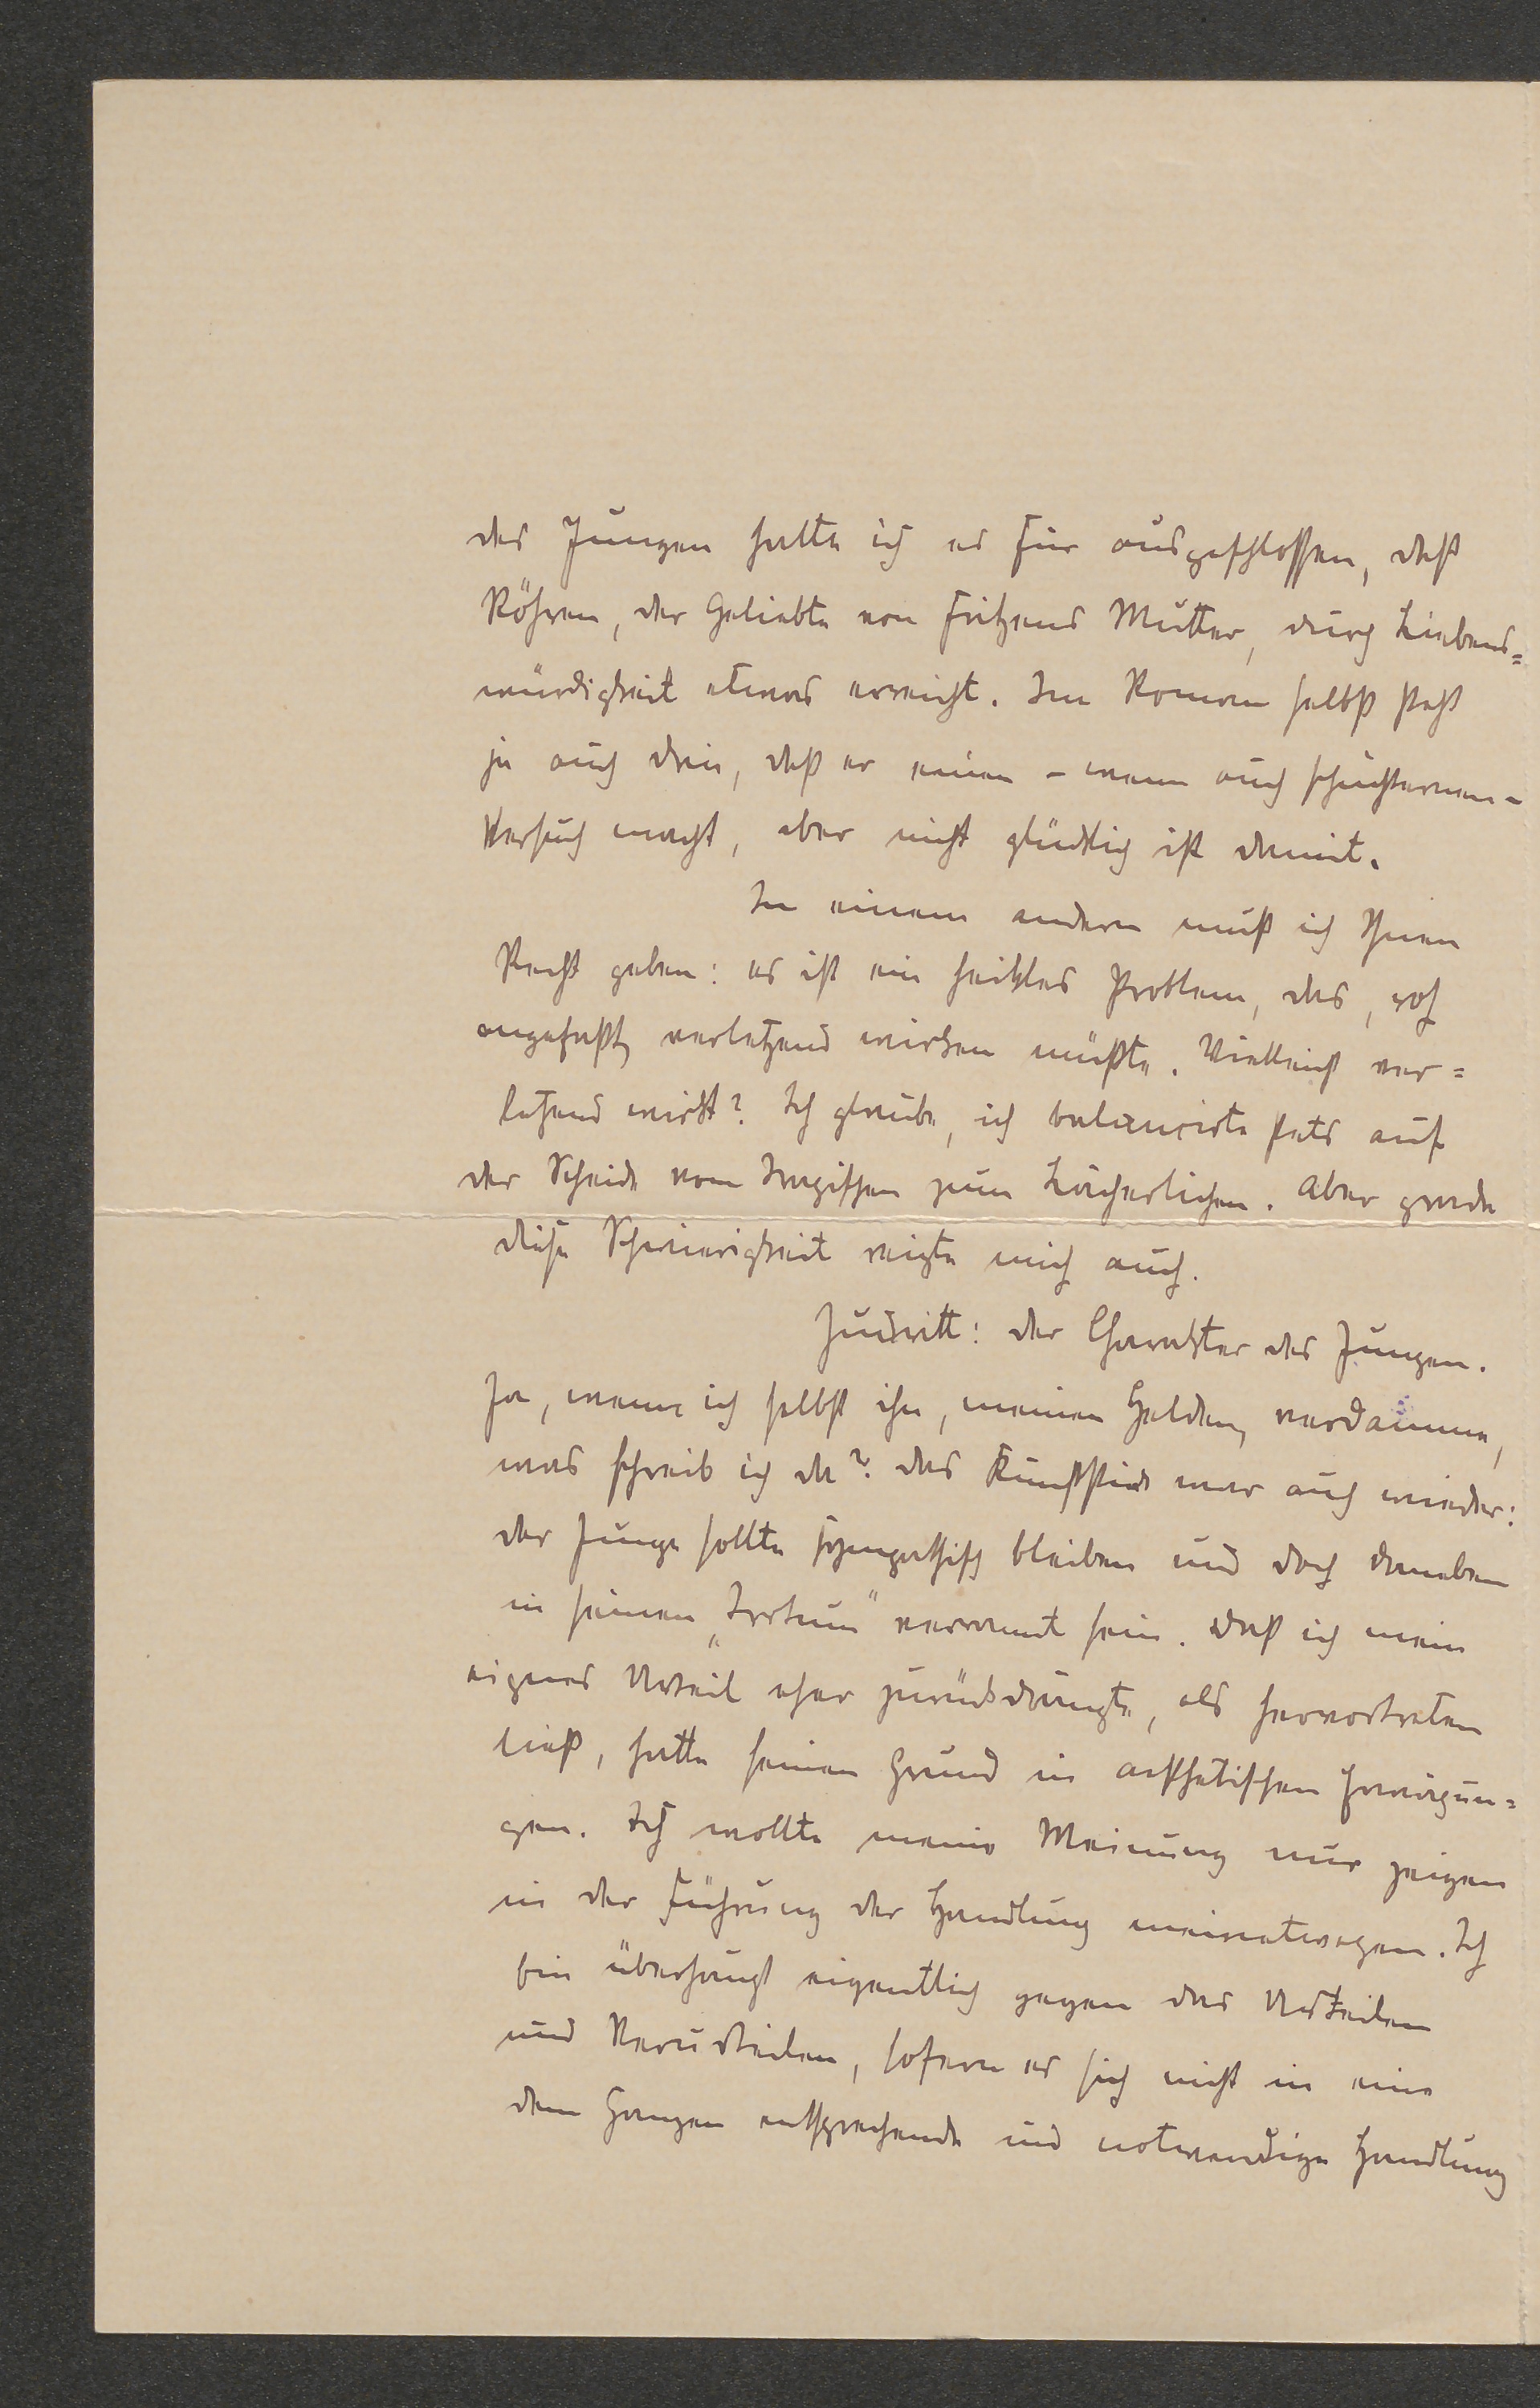 des Jungen halte ich es für ausgeschlossen, daß
Röhren, der Geliebte von Fritzens Mutter, durch Liebens=
würdigkeit etwas erreicht. Im Roman selbst steht
ja auch drin, daß er einen - wenn auch schüchternen -
Versuch macht, aber nicht glücklich ist damit.
In einem andern muß ich Ihnen
Recht geben: es ist ein heikles Problem, das, roh
angefaßt, verletzend wirken müßte. Vielleicht ver=
letzend wirkt? Ich glaube, ich balancirte stets auf
der Scheide vom Tragischen zum Lächerlichen. Aber grade
diese Schwierigkeit reizte mich auch.
Zudritt: der Charakter des Jungen.
Ja, wenn ich selbst ihn, meinen Helden, verdamme,
was schreib ich da? Das Kunststück war auch wieder:
der Junge sollte sympathisch bleiben und doch daneben
in seinen „Irrtum" verrannt sein. Daß ich mein
eignes Urteil eher zurückdrängte, als hervortreten
ließ, hatte seinen Grund in ästhetischen Erwägun=
gen. Ich wollte meine Meinung nur zeigen
in der Führung der Handlung meinetwegen. Ich
bin überhaupt eigentlich gegen das Urteilen
und Verurteilen, sofern es sich nicht in eine
dem Ganzen entsprechende und notwendige Handlung